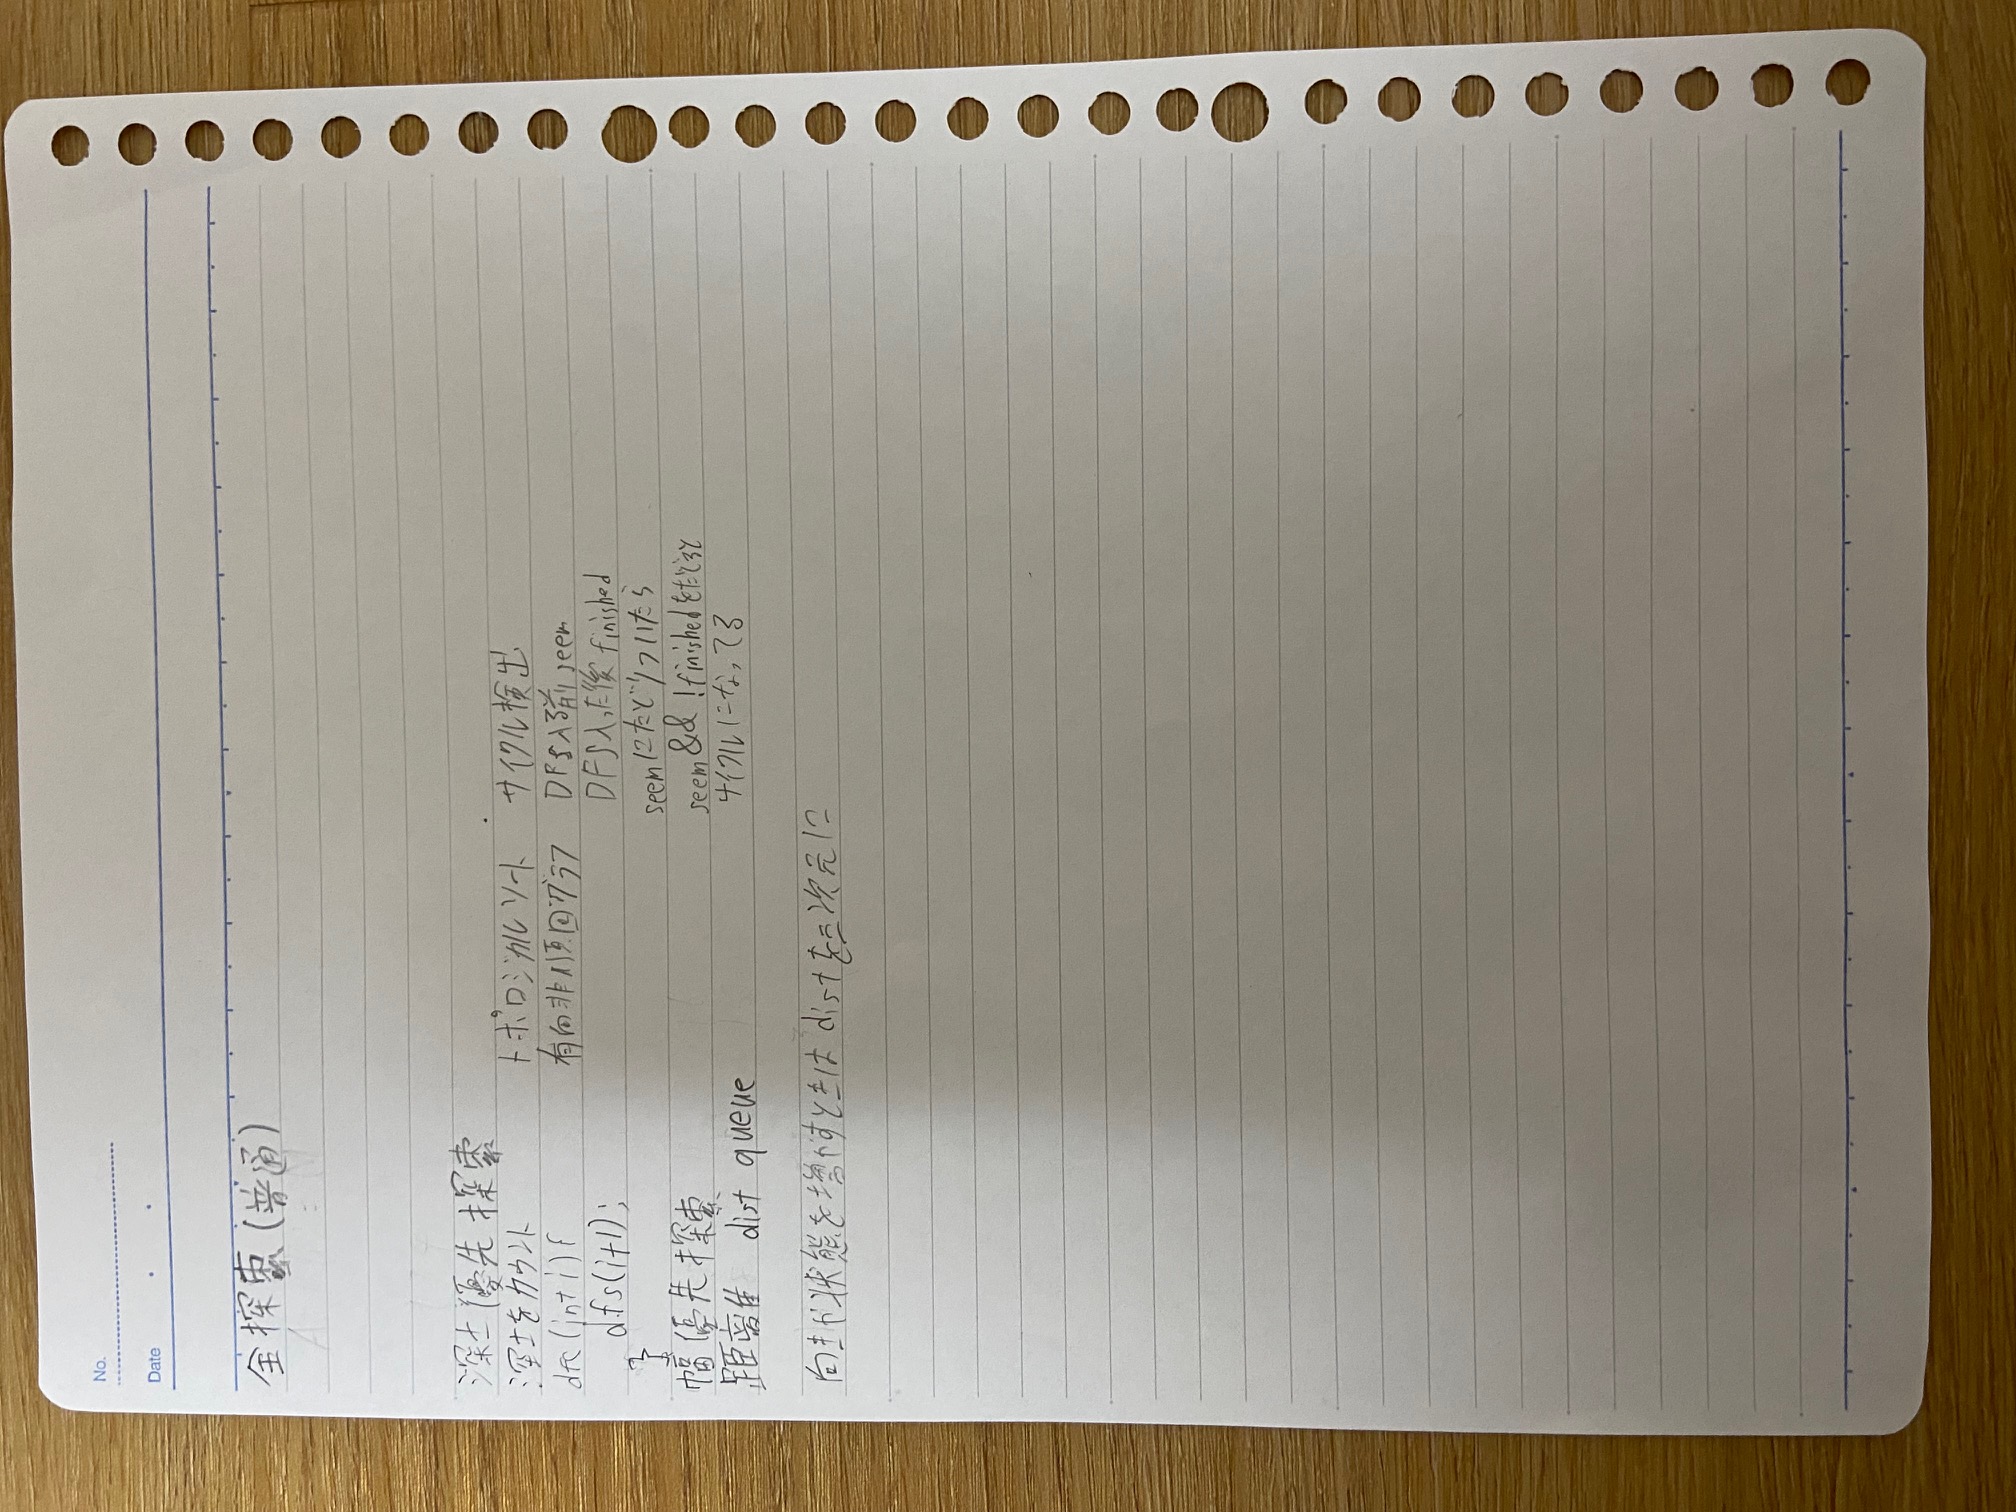 No.
Date
全探索(普通)
深さ優先探索
深さをカウント
dfs(int i){
dfs(i+1);
}
トポロジカルソート
有向非巡回グラフ
サイクル検出
DFS入る前seem
DFS入った後finished
seemにたどりついたら
seem && !finishedをたどると
サイクルになってる
幅優先探索
距離 dist queue
向きか状態を増やすときは distを三次元に